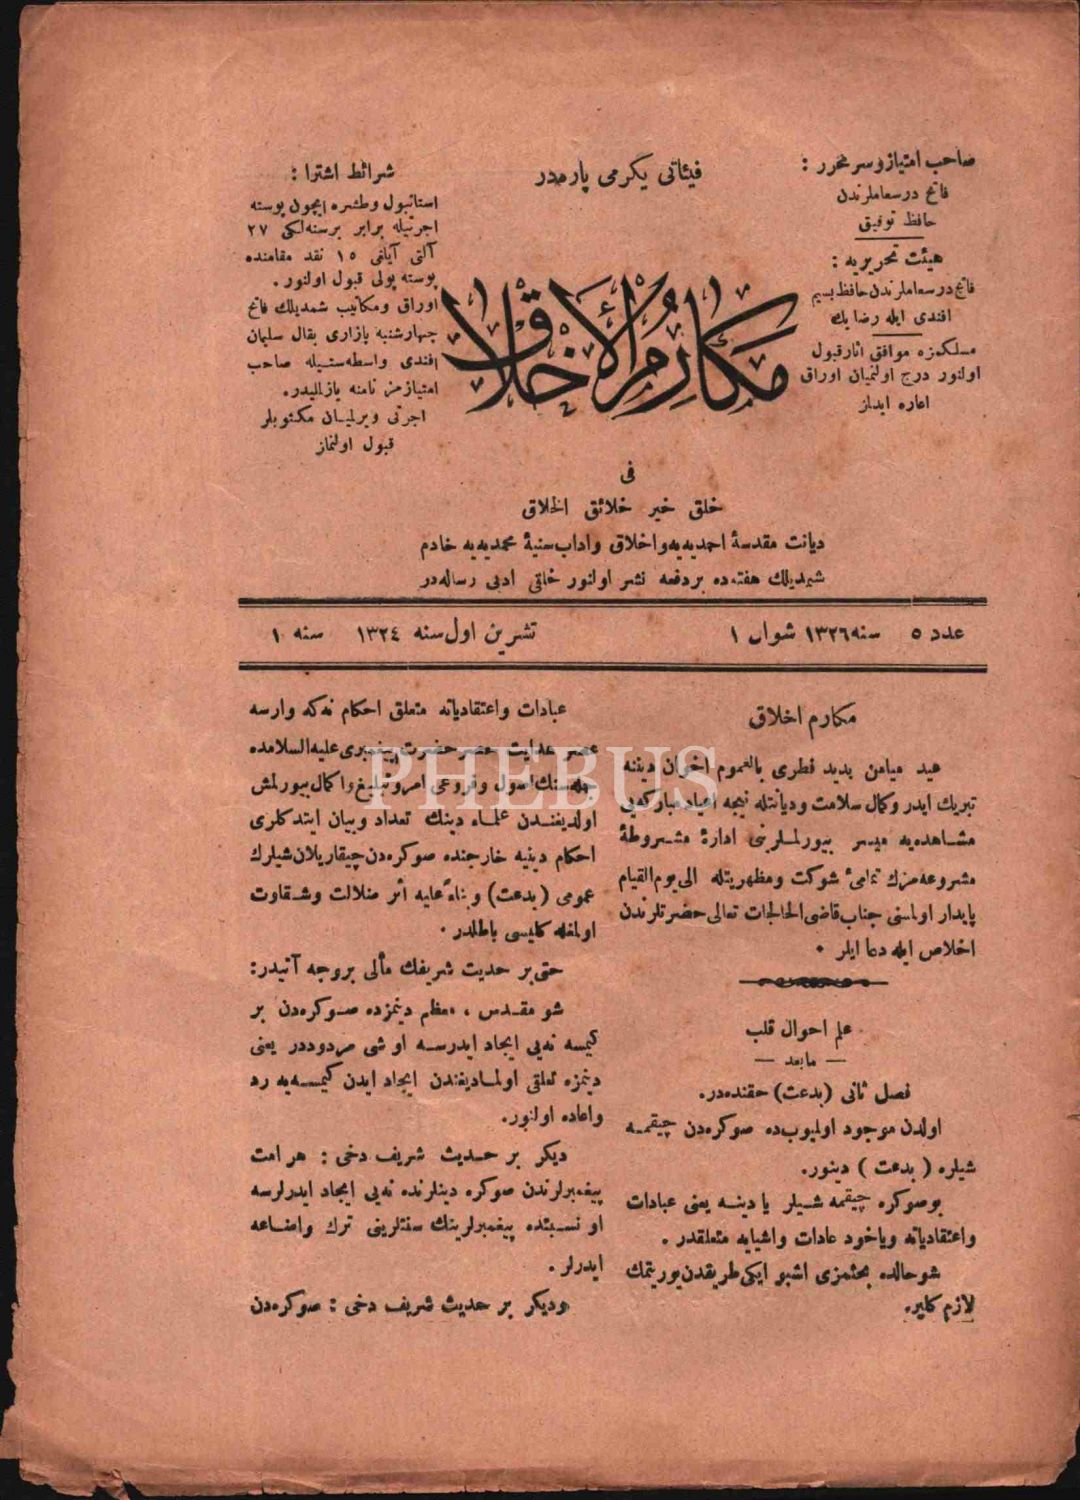 صاحب امتیاز و سر محرر :
فاتح درسعاملرندن
حافظ توفیق
هیئت تحریریه :
فاتح درسعاملرندن حافظ بسیم
افندی ایله رضا بك
مسلكمزه موافق آثار قبول
اولنور درج اولنمیان اوراق
اعاده ایدلز
فیئاتی یكرمی پاره‌در
شرائط اشترا :
استانبول و طشره ایچون پوسته
اجرتیله برابر برسنه‌لكی ۲۷
آلتی آیلغی ۱۵ نقد مقامنده
پوسته پولی قبول اولنور .
اوراق و مكاتیب شمدیلك فاتح
چهارشنبه پازاری بقال سلیمان
افندی واسطه‌سیله صاحب
امتیازمز نامنه یازلملیدر.
اجرتی ویرلمیان مكتوبلر
قبول اولنماز
مكارم الأخلاق
فی
خلق خیر خلائق الخلاق
دیانت مقدسهٔ احمدیه‌یه و اخلاق و اداب سنیهٔ محمدیه‌یه خادم
شیمدیلك هفته‌ده بر دفعه نشر اولنور خلقی ادبی رساله‌در
عدد ٥ سنه ١٣٢٦ شوال ١ تشرین اول سنه ١٣٢٤ سنه ١
مكارم اخلاق
عید میامن پدید فطری بالعموم اخوان دینه
تبریك ایدر و كمال سلامت و دیانتله نیجه اعیاد مباركه‌یی
مشاهده‌یه میسر بیورلملرینی ادارهٔ مشروطهٔ
مشروعه‌مزك تمامیٔ شوكت و مظهریتله الی یوم القیام
پایدار اولمسنی جناب قاضی الحاجات تعالی حضرتلرندن
اخلاص ایله دعا ایلر .
علم احوال قلب
— مابعد —
فصل ثانی (بدعت) حقنده‌در.
اولدن موجود اولمیوب‌ده صوكره‌دن چیقمه
شیلره ( بدعت ) دینور.
بو صوكره چیقمه شیلر یا دینه یعنی عبادات
و اعتقادیاته ویاخود عادات و اشیایه متعلقدر .
شو حالده بحثمزی اشبو ایكی طریقدن یوریتمك
لازم كلیر.
عبادات و اعتقادیاته متعلق احكام نه‌كه وارسه
عصر هدایت حصر حضرت پیغمبری علیه السلامده
جمله‌سنك اصول و فروعی امر و تبلیغ و اكمال بیورلمش
اولدیغندن علماء دینك تعداد و بیان ایتدكلری
احكام دینیه خارجنده صوكره‌دن چیقاریلان شیلرك
عمومی (بدعت) و بناءً علیه اثر ضلالت و شقاوت
اولمغله كلیسی باطلدر .
حتی بر حدیث شریفك مآلی بروجه آتیدر:
شو مقدس ، معظم دینمزده صوكره‌دن بر
كیمسه نه‌یی ایجاد ایدرسه او شی مردوددر یعنی
دینمزه تعلقی اولمادیغندن ایجاد ایدن كیمسه‌یه رد
و اعاده اولنور.
دیكر بر حدیث شریف دخی : هر امت
پیغمبرلرندن صوكره دینلرنده نه‌یی ایجاد ایدرلرسه
او نسبتده پیغمبرلرینك سنتلرینی ترك و اضاعه
ایدرلر .
و دیكر بر حدیث شریف دخی : صوكره‌دن
PHEBUS